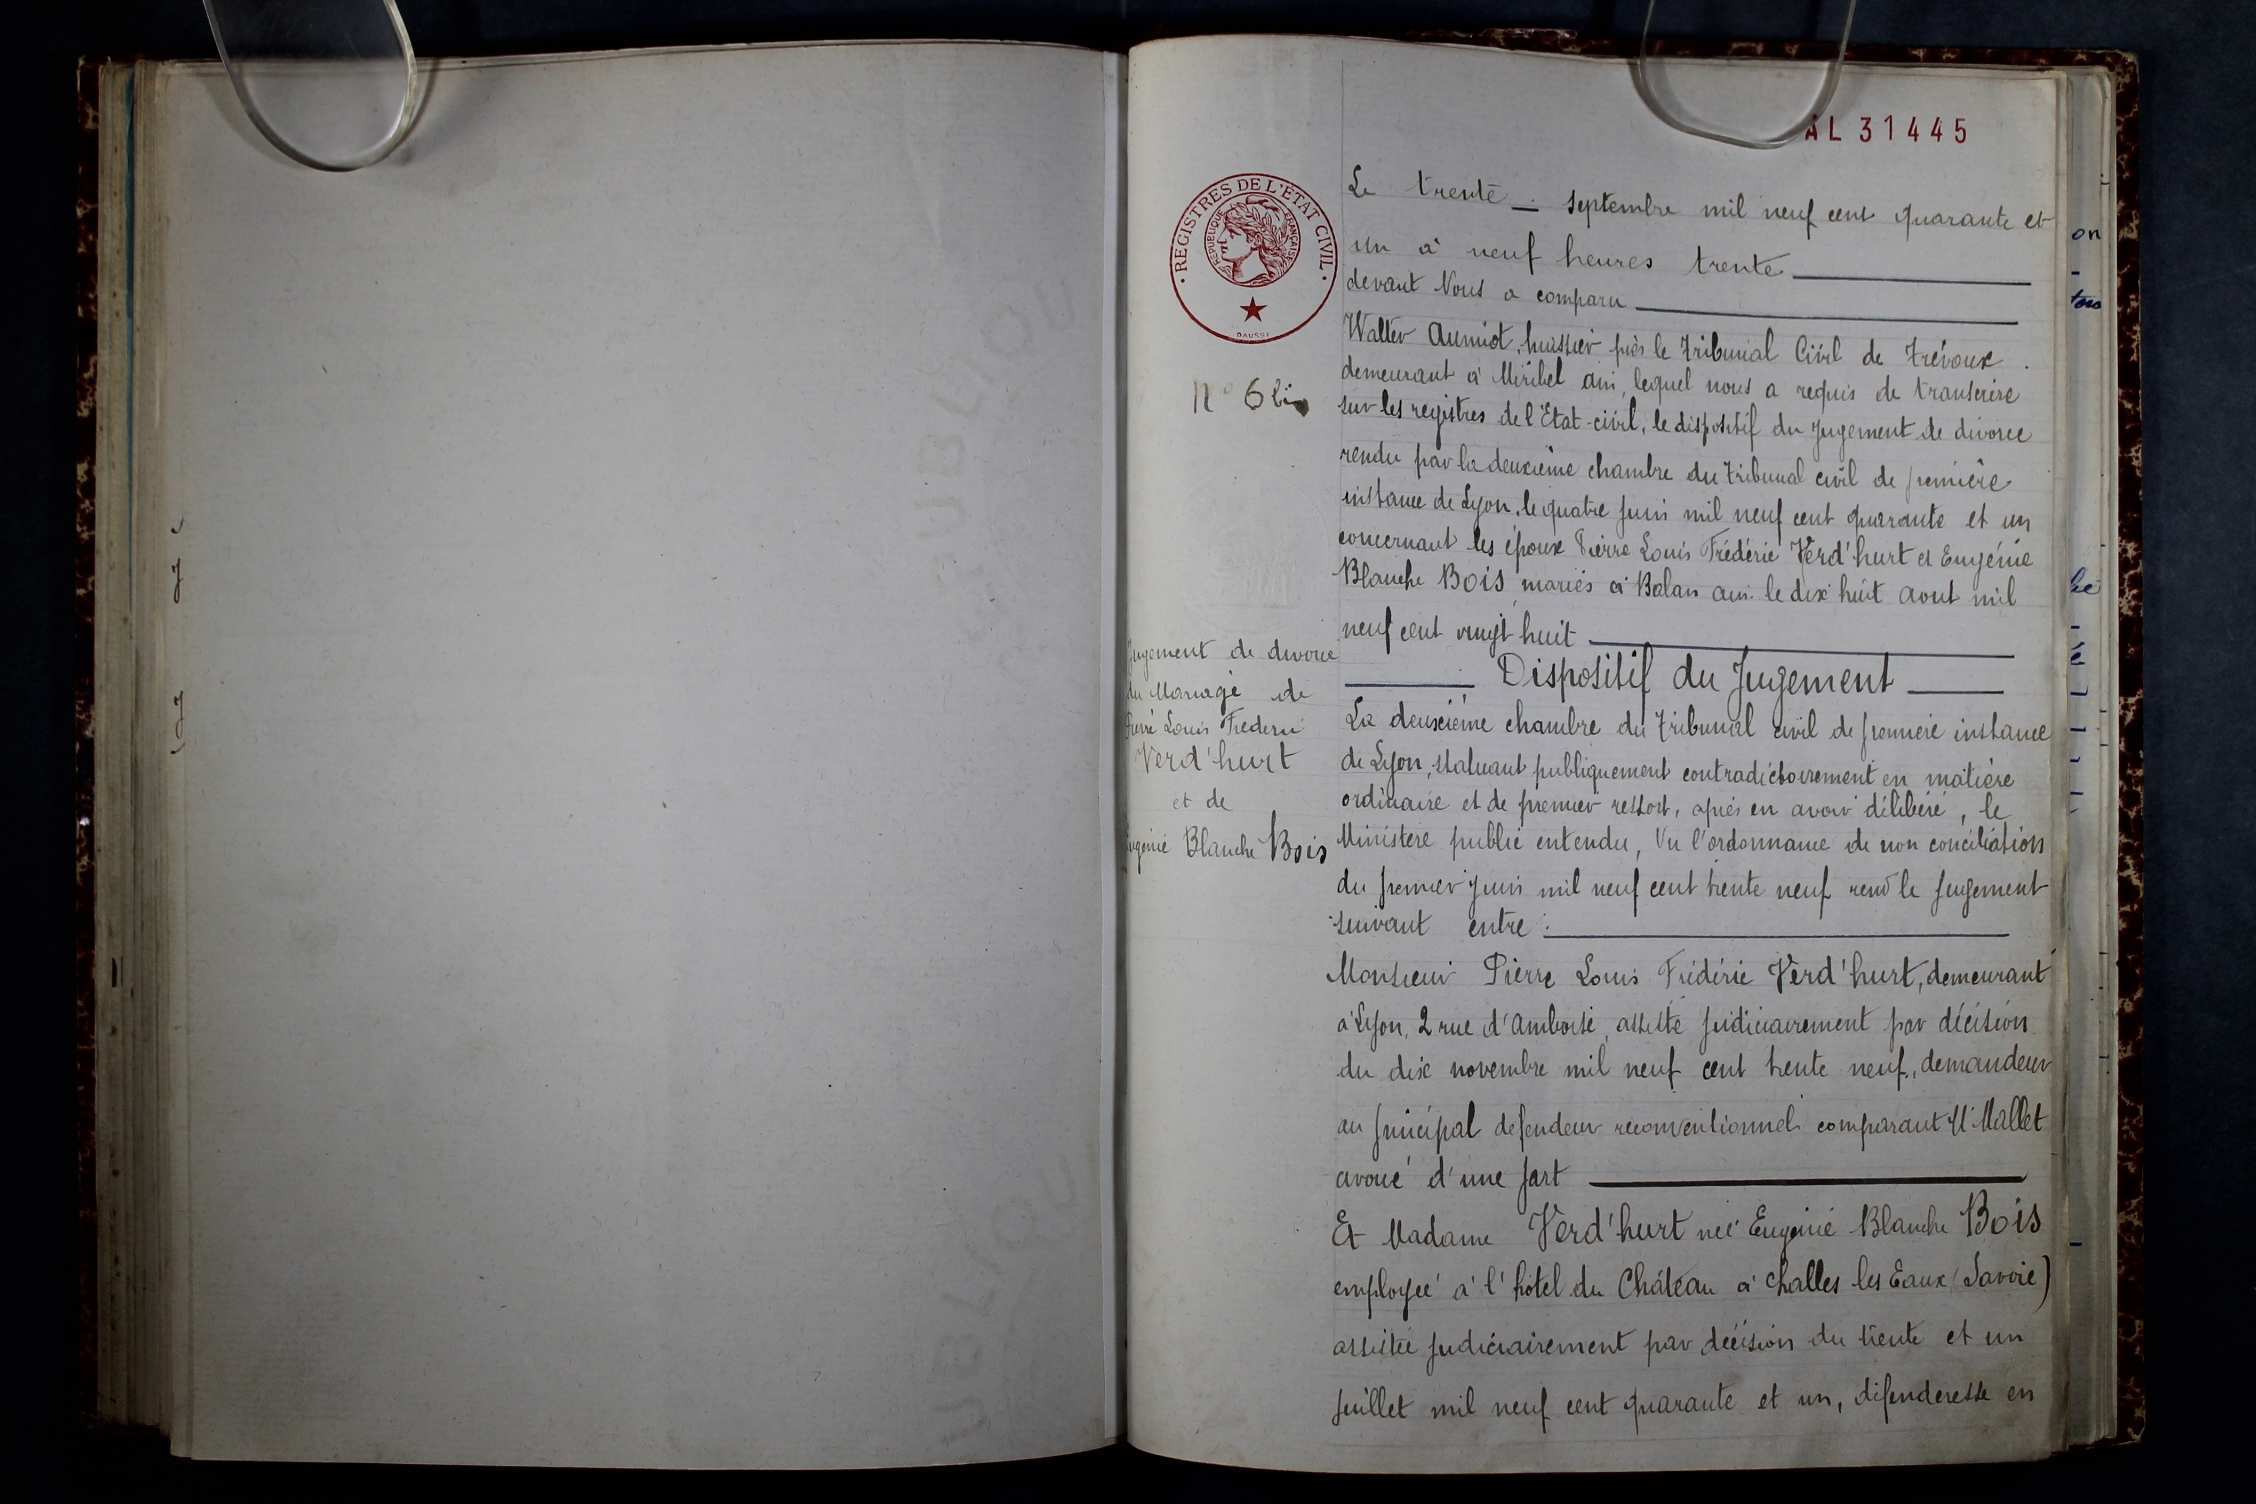 AL 31445
REGISTRES DE L'ÉTAT CIVIL
RÉPUBLIQUE FRANÇAISE
N° 6 bis
Le trente septembre mil neuf cent quarante et
un à neuf heures trente
devant Nous a comparu
Walter Aumiot, huissier près le Tribunal Civil de Trévoux
demeurant à Miribel Ain, lequel nous a requis de transcrire
sur les registres de l'Etat-civil, le dispositif du jugement de divorce
rendu par la deuxième chambre du Tribunal civil de première
instance de Lyon, le quatre juin mil neuf cent quarante et un
concernant les époux Pierre Louis Frédéric Verd'hurt et Eugénie
Blanche Bois mariés à Balan Ain le dix huit aout mil
neuf cent vingt huit
Jugement de divorce
du Mariage de
Pierre Louis Frederic
Verd'hurt
et de
Eugénie Blanche Bois
Dispositif du Jugement
La deuxième chambre du Tribunal civil de première instance
de Lyon, statuant publiquement contradictoirement en matière
ordinaire et de premier ressort, après en avoir délibéré, le
Ministère public entendu, Vu l'ordonnance de non conciliation
du premier juin mil neuf cent trente neuf rend le jugement
suivant entre :
Monsieur Pierre Louis Frédéric Verd'hurt, demeurant
à Lyon, 2 rue d'Amboise, assisté judiciairement par décision
du dix novembre mil neuf cent trente neuf, demandeur
au principal defendeur reconventionnel comparant Me Mallet
avoué d'une part
Et Madame Verd'hurt née Eugénie Blanche Bois
employée à l'hôtel du Château à Challes les Eaux (Savoie)
assistée judiciairement par décision du trente et un
juillet mil neuf cent quarante et un, défenderesse en